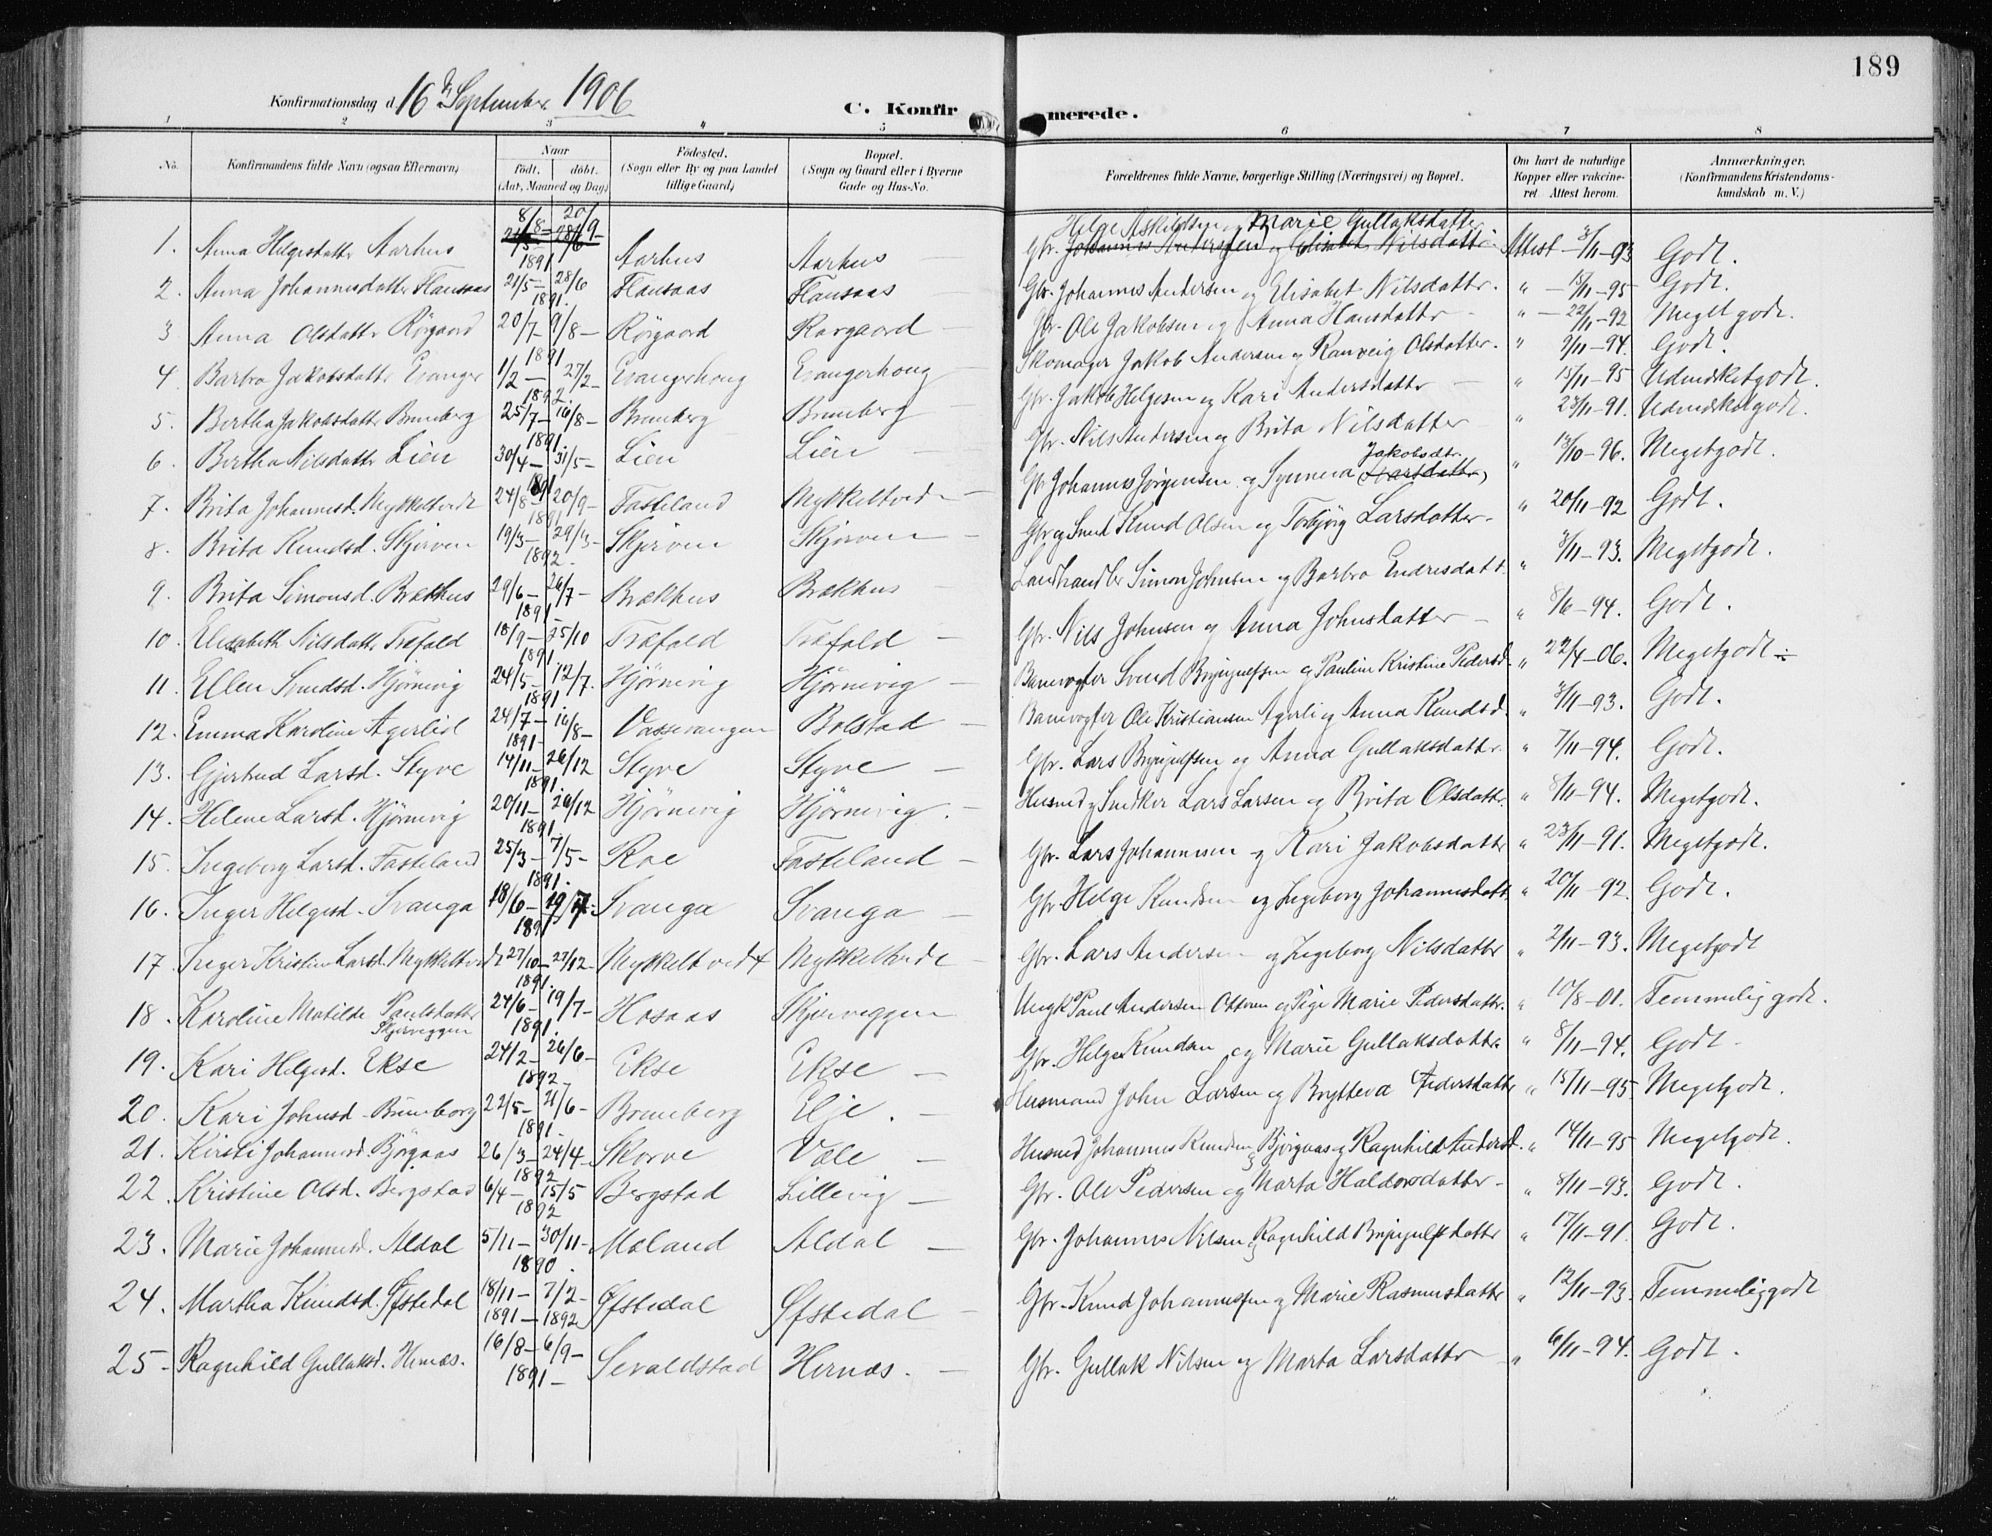 189
Konfirmationsdag d. 16de September 1906
C. Konfirmerede.
1 2 3 4 5 6 7 8
No. Konfirmandens fulde Navn (ogsaa Efternavn) Naar født. døbt. (Aar, Maaned og Dag) Fødested. (Sogn eller By og paa Landet tillige Gaard) Bopæl. (Sogn og Gaard eller i Byerne Gade og Hus-No. Forældrenes fulde Navne, borgerlige Stilling (Næringsvei) og Bopæl. Om havt de naturlige Kopper eller vakcineret Attest herom. Anmærkninger. (Konfirmandens Kristendomskundskab m. V.)
Helge Askildsen og Marie Gullaksdatter
1. Anna Helgesdatter Aarhus 8/8 – 20/9 – 1891 Aarhus Aarhus – Gbr. Johannes Andersen og Elisabet Nilsdatter Attest – 3/11 – 93 Godt.
2. Anna Johannesdatter Flausaas 21/5 – 28/6 1891. Flausaas Flausaas – Gbr. Johannes Andersen og Elisabet Nilsdatter. " – 15/11 – 95 Godt.
3 Anna Olsdatter Rørgaard 20/7 – 9/8 – 1891 Rørgaard Rørgaard – Gbr. Ole Jakobsen og Anna Hansdatter – " – 22/11 – 92 Meget godt.
4 Barbro Jakobsdatter Evanger 1/2 – 27/2 – 1892. Evangerhoug Evangerhoug – Skomager Jakob Andersen og Ranveig Olsdatter. " 9/11 – 94. Godt.
5. Bertha Jakobsdatter Brunberg 25/7 – 16/8 – 1891 Brunberg Brunberg Gbr. Jakob Helgesen og Kari Andersdatter – " 15/11 – 95 Udmærket godt.
6. Bertha Nilsdatter Lien 30/4 – 31/5 – 1891 Lien Lien – Gbr. Nils Andersen og Brita Nilsdatter – " 23/11 – 91. Udmærket godt.
7. Brita Johannesd. Mykkeltvedt 24/8 – 20/9 – 1891 Fasteland Mykkeltvedt – Gb. Johannes Jørgensen og Synneva Jakobsdtr. " 13/10 – 96. Meget godt.
8. Brita Knudsd. Skjerven 19/3 – 29/3 – 1892. Skjerven Skjerven – Gbr og Smed Knud Olsen og Torbjørg Larsdatter – " 20/11 – 92 Godt.
9. Brita Simonsd. Brækhus 29/6 – 26/7 – 1891 Brækhus Brækhus – Landhandler Simon Johnsen og Barbro Endresdatt. " 3/11 – 93. Meget godt.
10. Elisabeth Nilsdatter Træfald 18/9 – 25/10 1891 Træfald Træfald – Gbr. Nils Johnsen og Anna Johnsdatter – " 8/6 – 94. Godt.
11. Ellen Svendsd. Hjørnevig 24/5 – 12/7. 1891 Hjørnevig Hjørnevig – Banevogter Svend Brynjulfsen og Pauline Kristine Pedersd. " 22/4 – 06. Meget godt ÷
12. Emma Karoline Agerlid 24/7 – 16/8 – 1891 – Vossevangen Bolstad – Banevogter Ole Kristiansen Agerli og Anna Knudsd. " 3/11 – 93. Godt.
13. Gjertrud Larsd. Styve 14/11 – 26/12 1891 Styve Styve – Gbr. Lars Brynjulfsen og Anna Gullaksdatter " 7/11 – 94. Godt.
14. Helene Larsd. Hjørnevig 20/11 – 26/12 1891. Hjørnevig Hjørnevig. – Husmd og Snedker Lars Larsen og Brita Olsdatter. " 8/11 – 94. Meget godt.
15 Ingeborg Larsd. Fasteland 25/3 – 7/5 – 1891. Roe Fasteland – Gbr. Lars Johannesen og Kari Jakobsdatter " 23/11 – 91. Meget godt.
16. Inger Helgesd. Svanga 18/6 – 19/7. 1891 Svanga Svanga – Gbr. Helge Knudsen og Ingeborg Johannesdatt " 20/11 – 92. Godt.
17 Inger Kristine Larsd. Mykkeltvedt 27/10 – 27/12 – 1891. Mykkeltvedt Mykkeltvedt – Gbr. Lars Andersen og Ingeborg Nilsdatter " 2/11 – 93. Meget godt
18. Karoline Matilde Paulsdatter Skjerveggen 24/6 – 19/7 – 1891. Hosaas Skjerveggen Ungk Paul Andersen Ottern og Pige Marie Pedersdatter. " 10/8 – 01. Temmelig godt.
19. Kari Helgesd. Ekse 24/2 – 26/6 – 1892 Ekse Ekse – Gbr. Helge Knudsen og Marie Gullaksdatter " 8/11 – 94. Godt.
20. Kari Johnsd. Brunborg 22/5 – 21/6 – 1891. Brunborg Elje. – Husmand John Larsen og Brytteva Pedersdatter " 15/11 – 95 Meget godt.
21. Kirsti Johannesd. Bjørgaas 26/3 – 24/4 – 1892 Skorve Væle – Husmd Johannes Knudsen Bjørgaas og Ragnhild Andersd. " 14/11 – 95 Meget godt.
22. Kristine Olsd. Bergstad 6/4 – 15/5 1892 Bergstad Lillevig – Gbr. Ole Pedersen og Marta Haldorsdatter – " 8/11 – 93. Godt.
23. Marie Johannesd. Aldal 5/11 – 30/11 – 1890. Moland Aldal – Gbr. Johannes Nilsen og Ragnhild Brynjulfsdatter " 17/11 – 91. Godt.
24. Martha Knudsd. Øfstedal 18/11 – 7/2 – 1891 – 1892 Øfstedal Øfstedal – Gbr. Knud Johannessen og Marie Rasmusdatter " 12/11 – 93. Temmelig godt
25 – Ragnhild Gullaksd. Hernæs. 16/8 – 6/9 – 1891 – Sevaldstad Hernæs. – Gbr. Gullak Nilsen og Marta Larsdatter " 6/11 – 94. Godt.